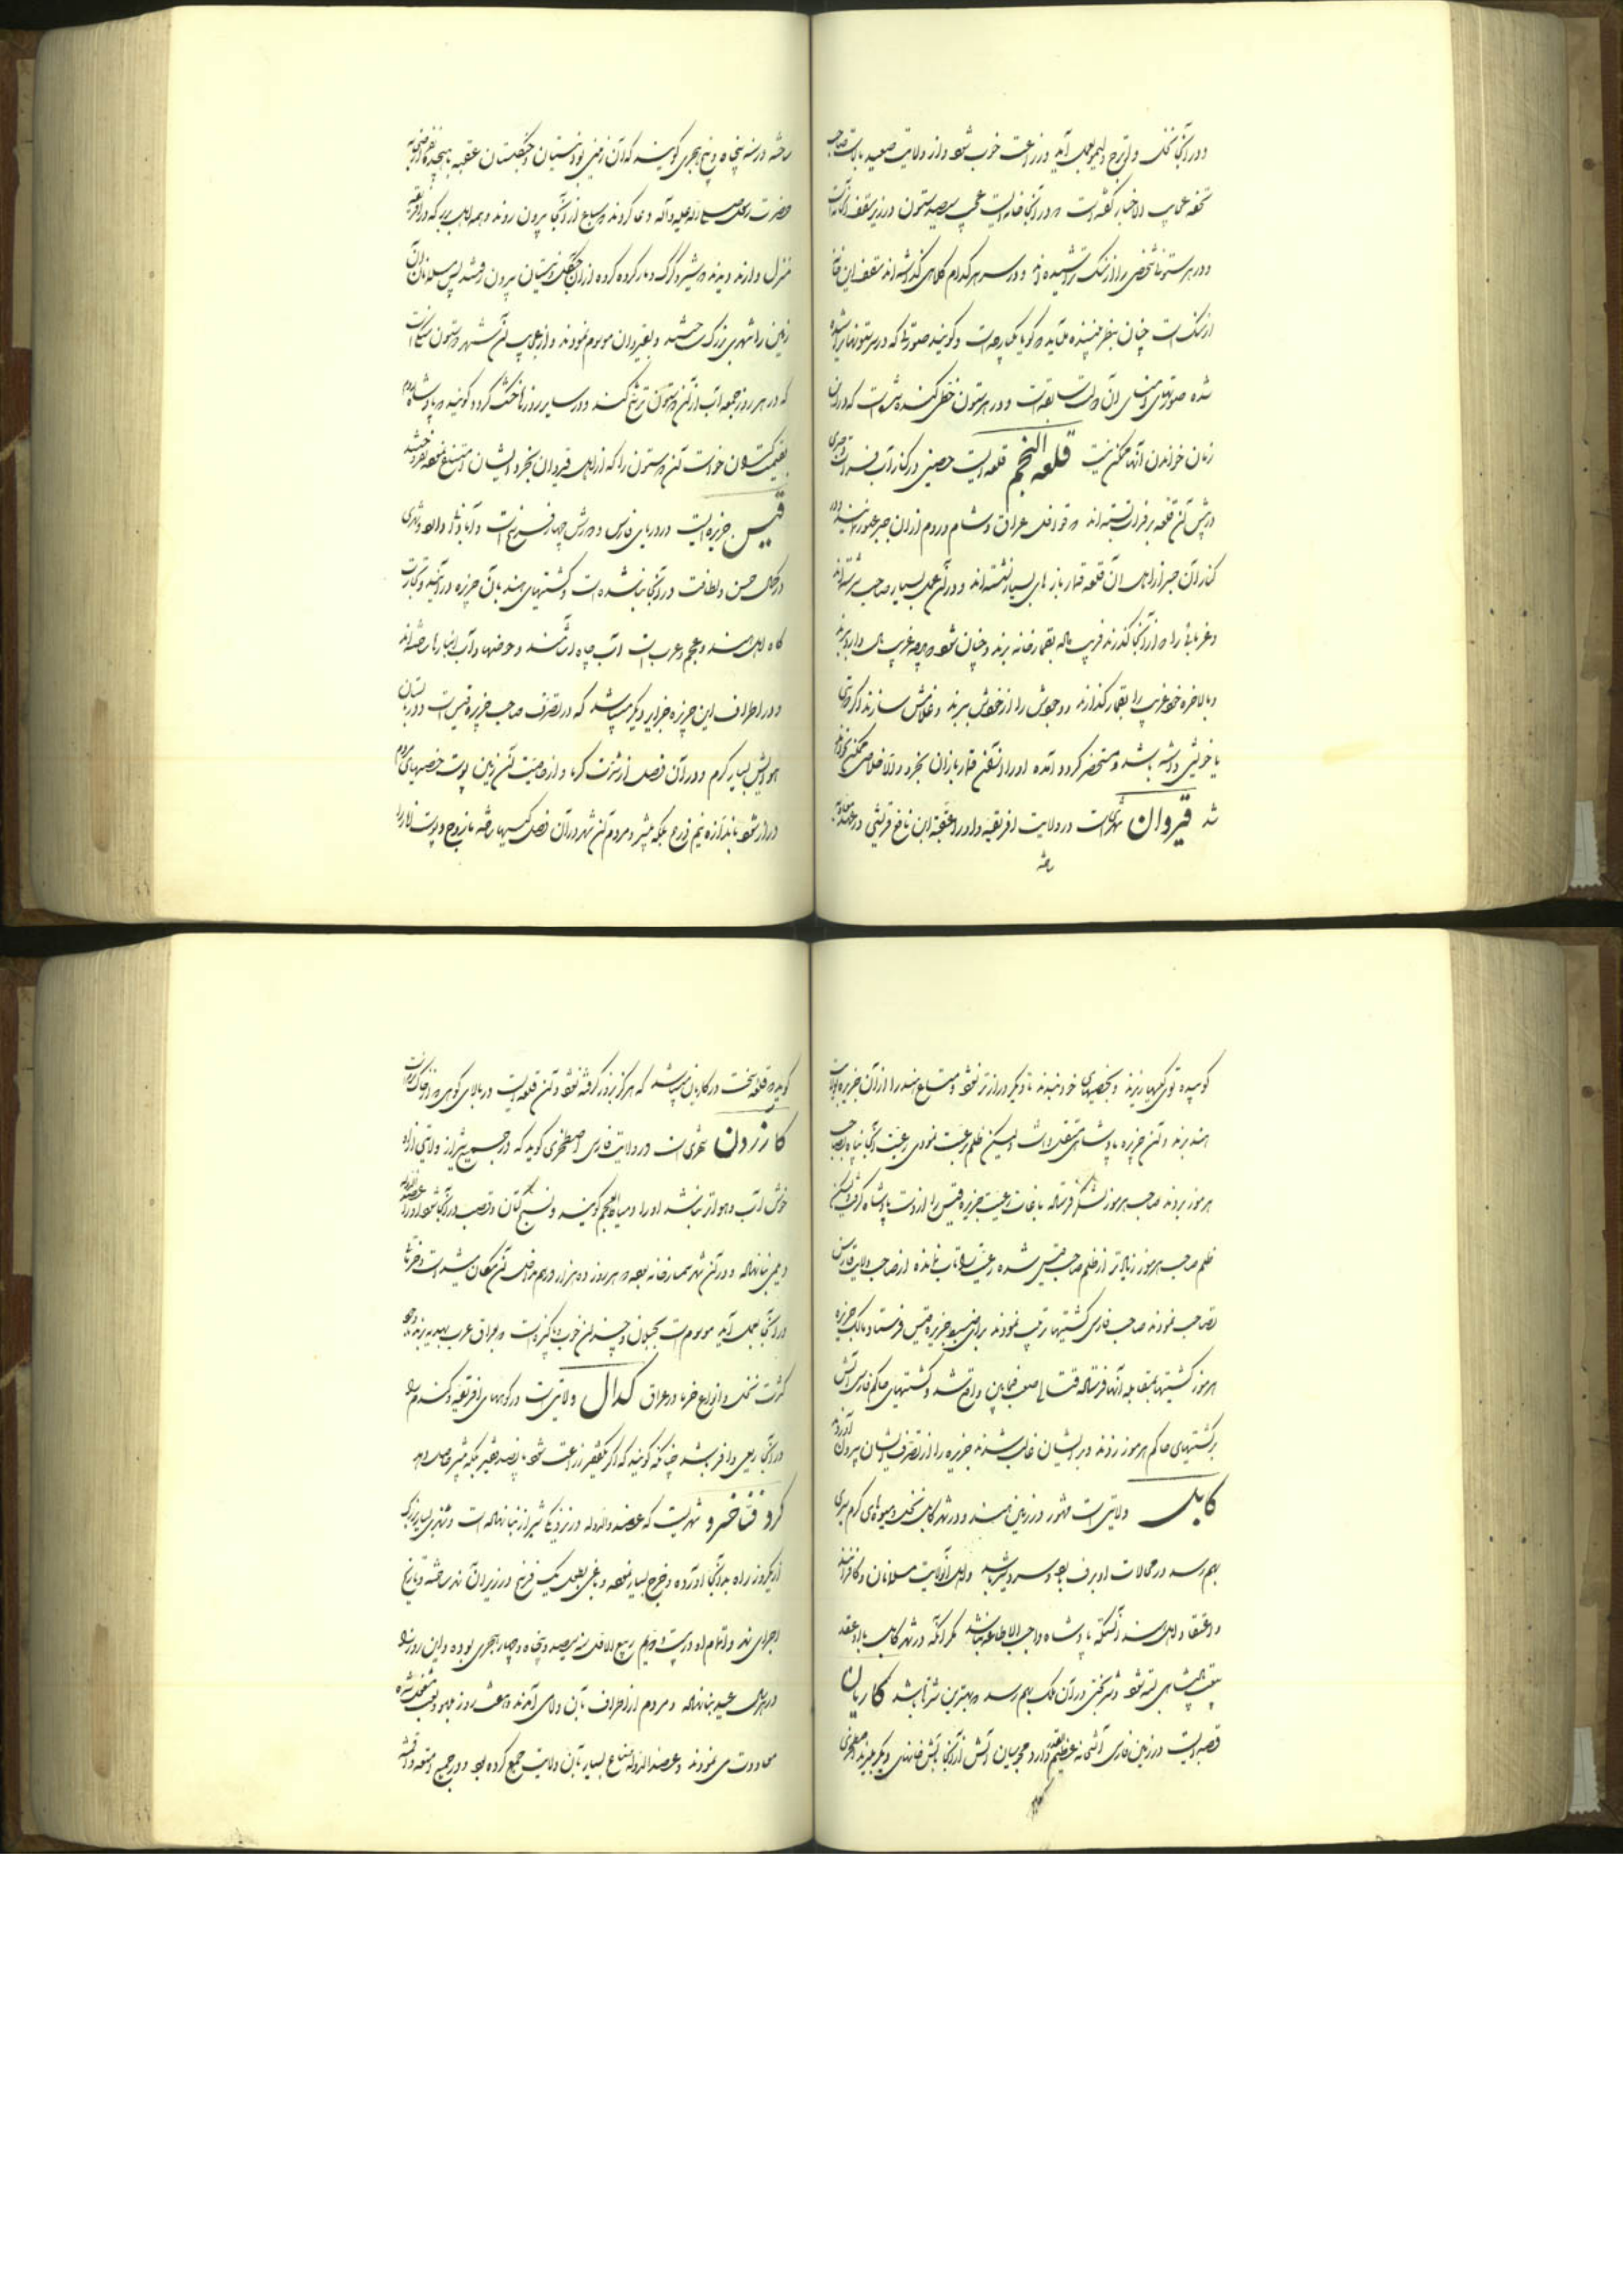 و در آنجا نخل و اترج و لیمو بعمل آید و زراعت خوب شود و از ولایت صعید بالاست صاحب
تحفه عجایب الاخبار گفته است در آنجا خانه ایست عجب سیصد ستون در زیر سقف آنست
و در هر ستونها شخصی را از سنگ تراشیده اند و در سر هر کدام کلاهی گذاشته اند سقف این خانه
از سنگ است چنان بنظر بیننده می آید که گویا یکپارچه است و گویند صورتها که در سر ستونها تراشیده
شده صورتهای و در هر ستون خطی کنده شده است که در این
زمان خواندن آنها ممکن نیست قلعه النجم قلعه ایست حصین در کنار آب فرات
در پیش آن قلعه بر فرات بسته اند که قوافل عراق و شام و روم از آن جسر عبور
کنار آن جسر از اهل آن قلعه قمار باز های بسیار نشسته اند و در آن عمل بسیار صاحب سررشته اند
و غربائی را که از آنجا گذرند فریب داده بقمارخانه برند و چنان شود که هرچه غریب مال دارد ببرند
و بالاخره خود غریب را بقمار گذارند و وجودش را از خودش ببرند و غلامش سازند اگر دوستی
یا خویشی داشته باشد و مستحضر گردد آمده او را از آن قمار بازان بخرد والا خلاصی ممکن
شد قیروان شهریست در ولایت افریقیه و او را عقبة ابن نافع قرشی در عهد معاویه
ساخته
ساخته در سنه پنجاه و پنج هجری گویند که آن زمین نیستان و جنگلستان عقبه
حضرت رسول صلی الله علیه و آله دعا کردند که سباع از آنجا بیرون روند و همه اهل بربر که در افریقیه
منزل دارند دیدند که شیر و گرگ و مار گروه گروه از آن جنگل و نیستان بیرون رفتند پس مسلمانان آن
زمین را شهری بزرگ ساختند و بقیروان موسوم نمودند و از عجایب آن شهر دو ستون سنگ است
که در هر روز جمعه آب از آن دو ستون ترشح کند و در سایر روزها خشک گردد و گویند که پادشاه روم
بقیمت گران خواست آن دو ستون را که از اهل قیروان بخرد ایشان امتناع نموده نفروختند
قیس جزیره ایست در دریای فارس و دورش چهار فرسخ است و آبادیها دارد و شهری
در کمال حسن و لطافت در آنجا بنا شده است و کشتیهای هند بآن جزیره در آیند و تجارت
گاه اهل هند و عجم و عرب است آب چاه آشامند و حوضها و آب انبارها ساخته اند
و در اطراف این جزیره جزایر دیگر میباشد که در تصرف صاحب جزیره قیس است و در تابستان
هوایش بسیار گرم و در آن فصل از شدت گرما و از خاصیت آن زمین پوست خصیهای مردم
دراز شود باندازه نیم ذرع بلکه بیشتر و مردم آن شهر در آن فصل کیسها ساخته مازوج و پوست انار را
کوبیده توی کیسها ریزند و بخصیهای خود بندند تا دیگر درازتر نشود و متاع هند را از آن جزیره بولایت
هند برند و آن جزیره پادشاه مستقلی داشت و لیکن ظلم رعیت نمودی رعیت آنجا پناه بصاحب
هرموز بردند صاحب هرموز لشکر فرستاده باعانت رعیت جزیره قیس را از دست پادشاه گرفت و لیکن
ظلم صاحب هرموز زیاده تر از ظلم صاحب قیس شده رعیت را تاب نمانده از صاحب ولایت فارس
نمودند صاحب فارس کشتیها ترتیب نمودند برای ضبط جزیره قیس فرستاد و مالک جزیره
هرموز کشتیها بمقابله آنها فرستاده قتال صعب فیمابین واقع شد و کشتیهای حاکم فارس آتش
بر کشتیهای حاکم هرموز زدند و بر ایشان غالب شدند جزیره را از تصرف ایشان بیرون آوردند
کابل ولایتی است مشهور در زمین هند و در شهر کابل نخل و میوه های گرم سیری
بهم رسد در محالات او برف بود و سردسیر باشد و اهل آن ولایت مسلمانان و کافرانند
و اعتقاد اهل هند آنکه پادشاه واجب الاطاعه نباشد مگر آنکه در شهر کابل باو عقد
بیعت پادشاهی بسته شود و شتر بختی در آن ملک بهم رسد که بهترین شترها باشد کاریان
قصبه ایست در زمین فارس آتشخانه عظیم دارد مجوسیان آتش از آنجا بآتش خانهای دیگر میبرند اصطخری
گوید
گوید که قلعه سخت در کاریان میباشد که هرگز بزور گرفته نشود و آن قلعه ایست در بالای کوهی که از خاک است
کازرون شهری است در ولایت فارس اصطخری گوید که در جمیع شیراز ولایتی از او
خوش آب و هواتر نباشد او را دمیاط العجم گویند و نسج کتان و قصب در آنجا شود او را عضد الدوله
دیلمی بنا نهاده و در آن شهر سمسارخانه بوده هر روز ده هزار درهم مداخل آن مکان میشده است و خرما
در آنجا بعمل آید موسوم است بجیلان و چندان خوب و پاکیزه است که بعراق عرب بهدیه برند با وجود
کثرت نخل و انواع خرما در عراق کدال ولایتی است در کوههای افریقیه و گندم را
در آنجا ریعی وافر باشد چنانکه گویند که اگر یکقفیز زراعت شود پانصد قفیز بلکه بیشتر حاصل دهد
کرد فناخسرو شهریست که عضد الدوله در نزدیک شیراز بنا نهاده است و نهری بسیار بزرگ
از یکروز راه بدانجا آورده و خرج بسیار نموده و باغی بطول یک فرسخ در زیر آن نهر ساخته و تاریخ
اجرای نهر و اتمام او در بیست و دویم ربیع الاول سنه سیصد و پنجاه و چهار هجری بوده و این روز را
در هر سال عید بنا نهاده و مردم از اطراف بآن ولایت آمدند هفت روز بلهو و لعب مشغول شده
معاودت می نمودند و عضد الدوله متاع بسیار بآن ولایت جمع کرده بود و در جمیع امتعه و اقمشه